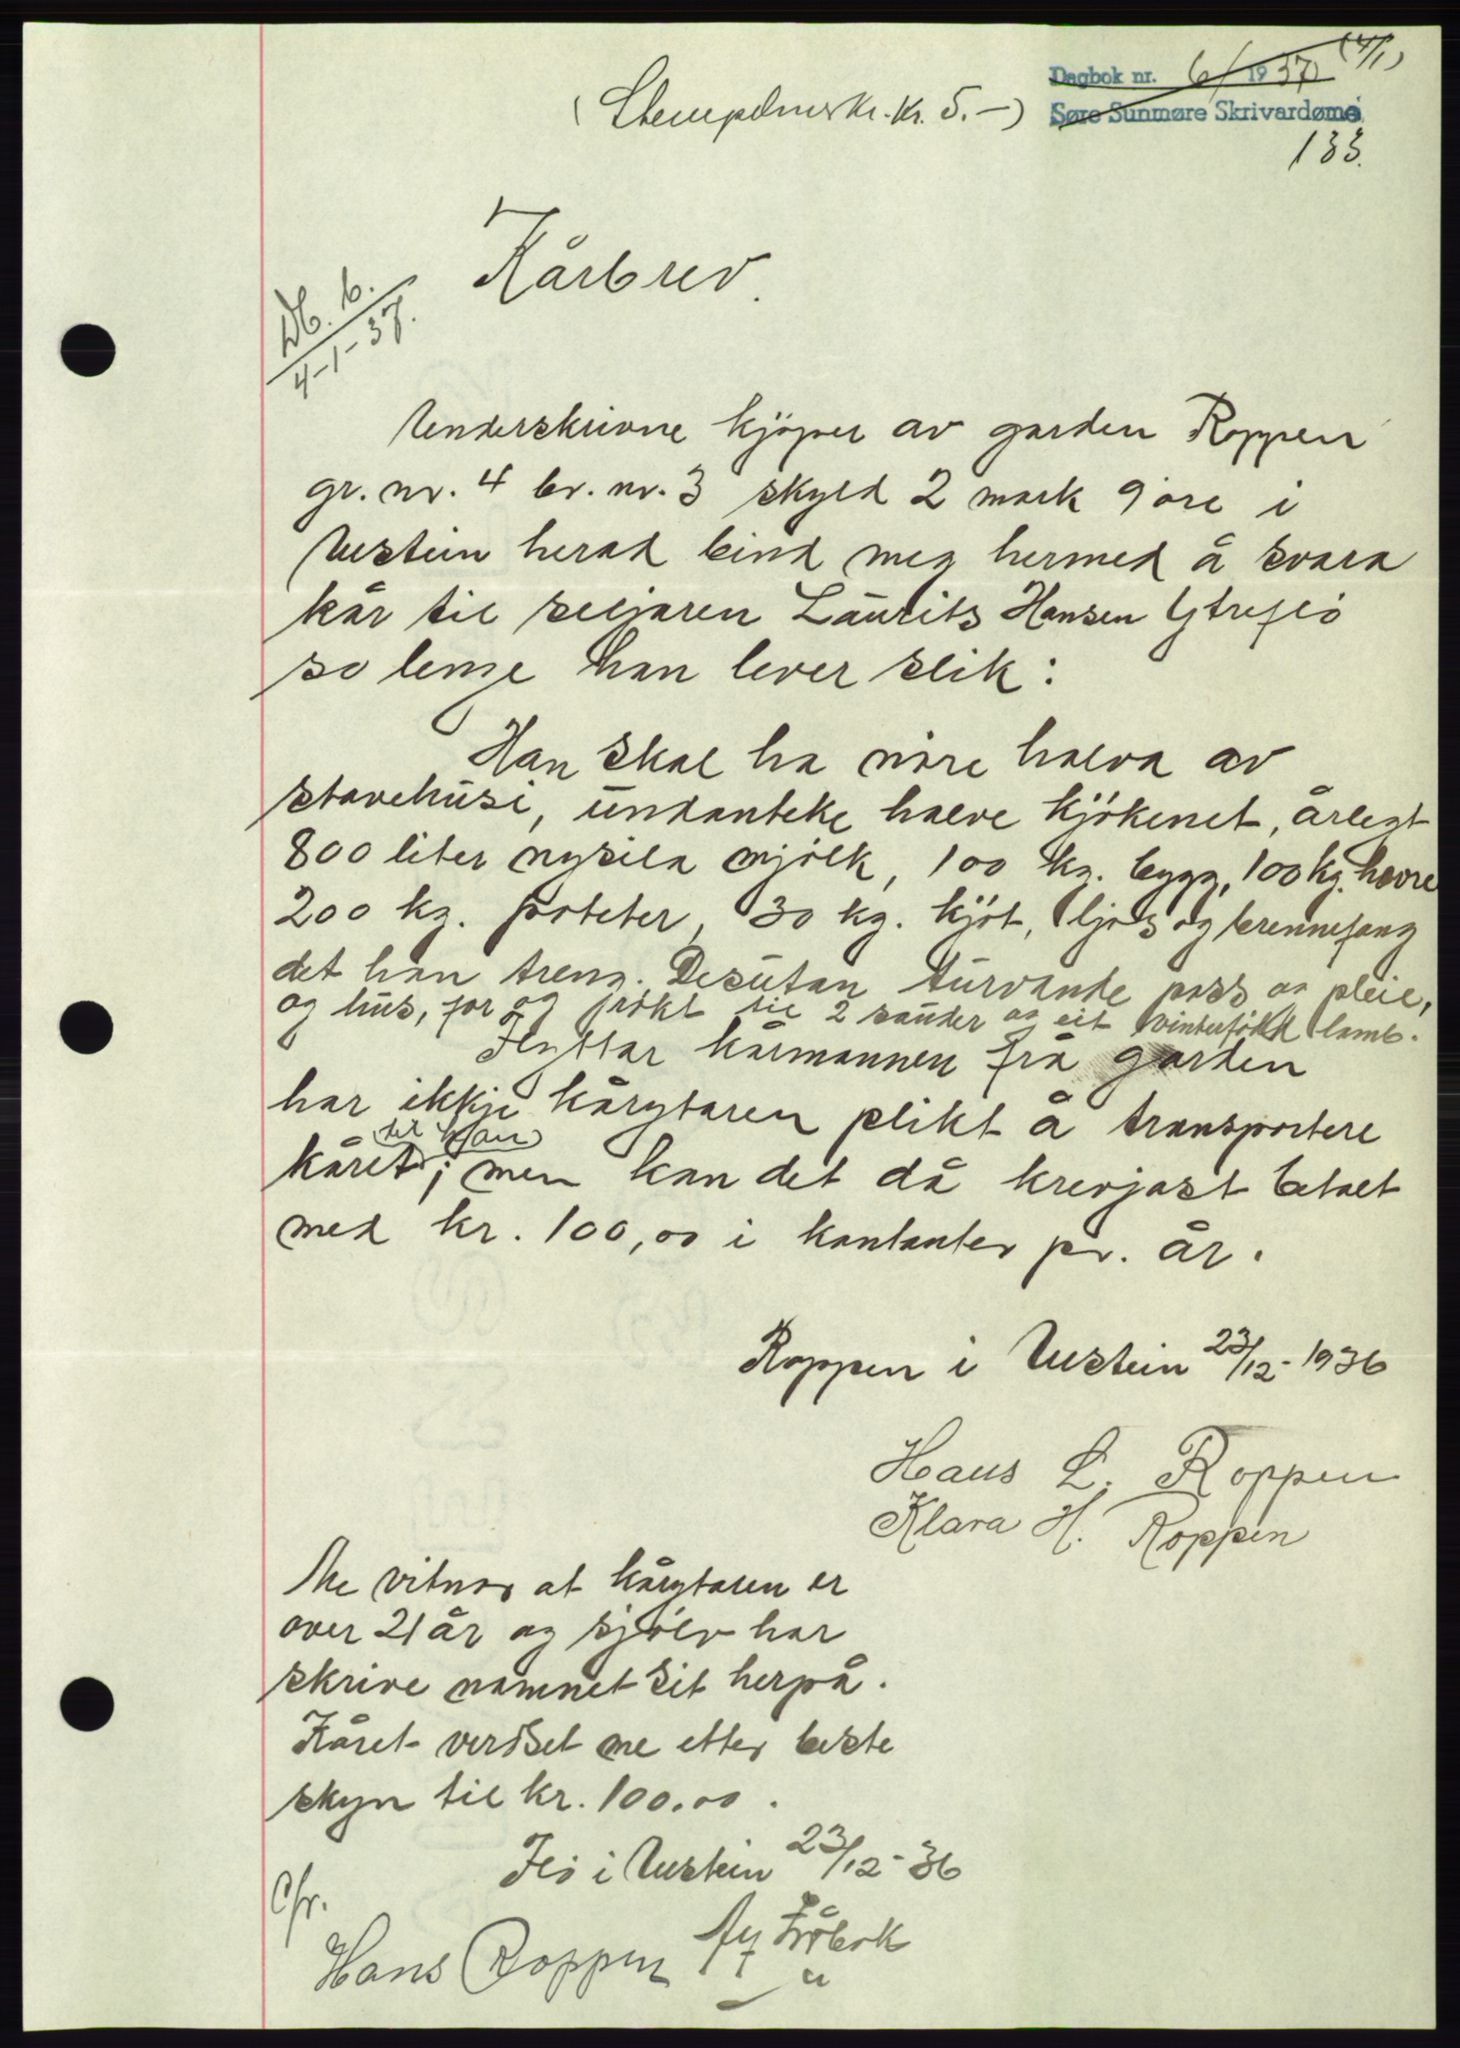 Dagbok nr. 6/1937 (4/1)
(Stempelmerk. kr. 5.-)
Søre Sunmøre Skrivardøme
133.
Kårbrev.
Db. 6.
4-1-37.
Underskrivne kjöper av garden Roppen
gr. nr. 4 br. nr. 3 skyld 2 mark 9 öre i
Ulstein herad bind meg hermed å svara
kår til seljaren Laurits Hansen Ytreflö
so lenge han lever slik:
Han skal ha nöre halva av
stovehusi, undanteke halve kjökenet, årlegt
800 liter nysila mjölk, 100 kg. bygg, 100 kg. havre
200 kg. poteter, 30 kg. kjöt, ljos og brennefang
det han treng. Desutan turvande pass og pleie,
og hus, for og rökt til 2 sauder og eit vinterfödd lamb.
Flyttar kårmannen frå garden
har ikkje kårytaren plikt å transportere
kåret til han; men kan det då krevjast betalt
med kr. 100,00 i kontanter pr. år.
Roppen i Ulstein 23/12-1936
Hans L. Roppen
Klara H. Roppen
Me vitnar at kårytaren er
over 21 år og sjölv har
skrive namnet sit herpå.
Kåret verdset me etter beste
skyn til kr. 100.00.
Flö i Ulstein 23/12-36
Hans Roppen